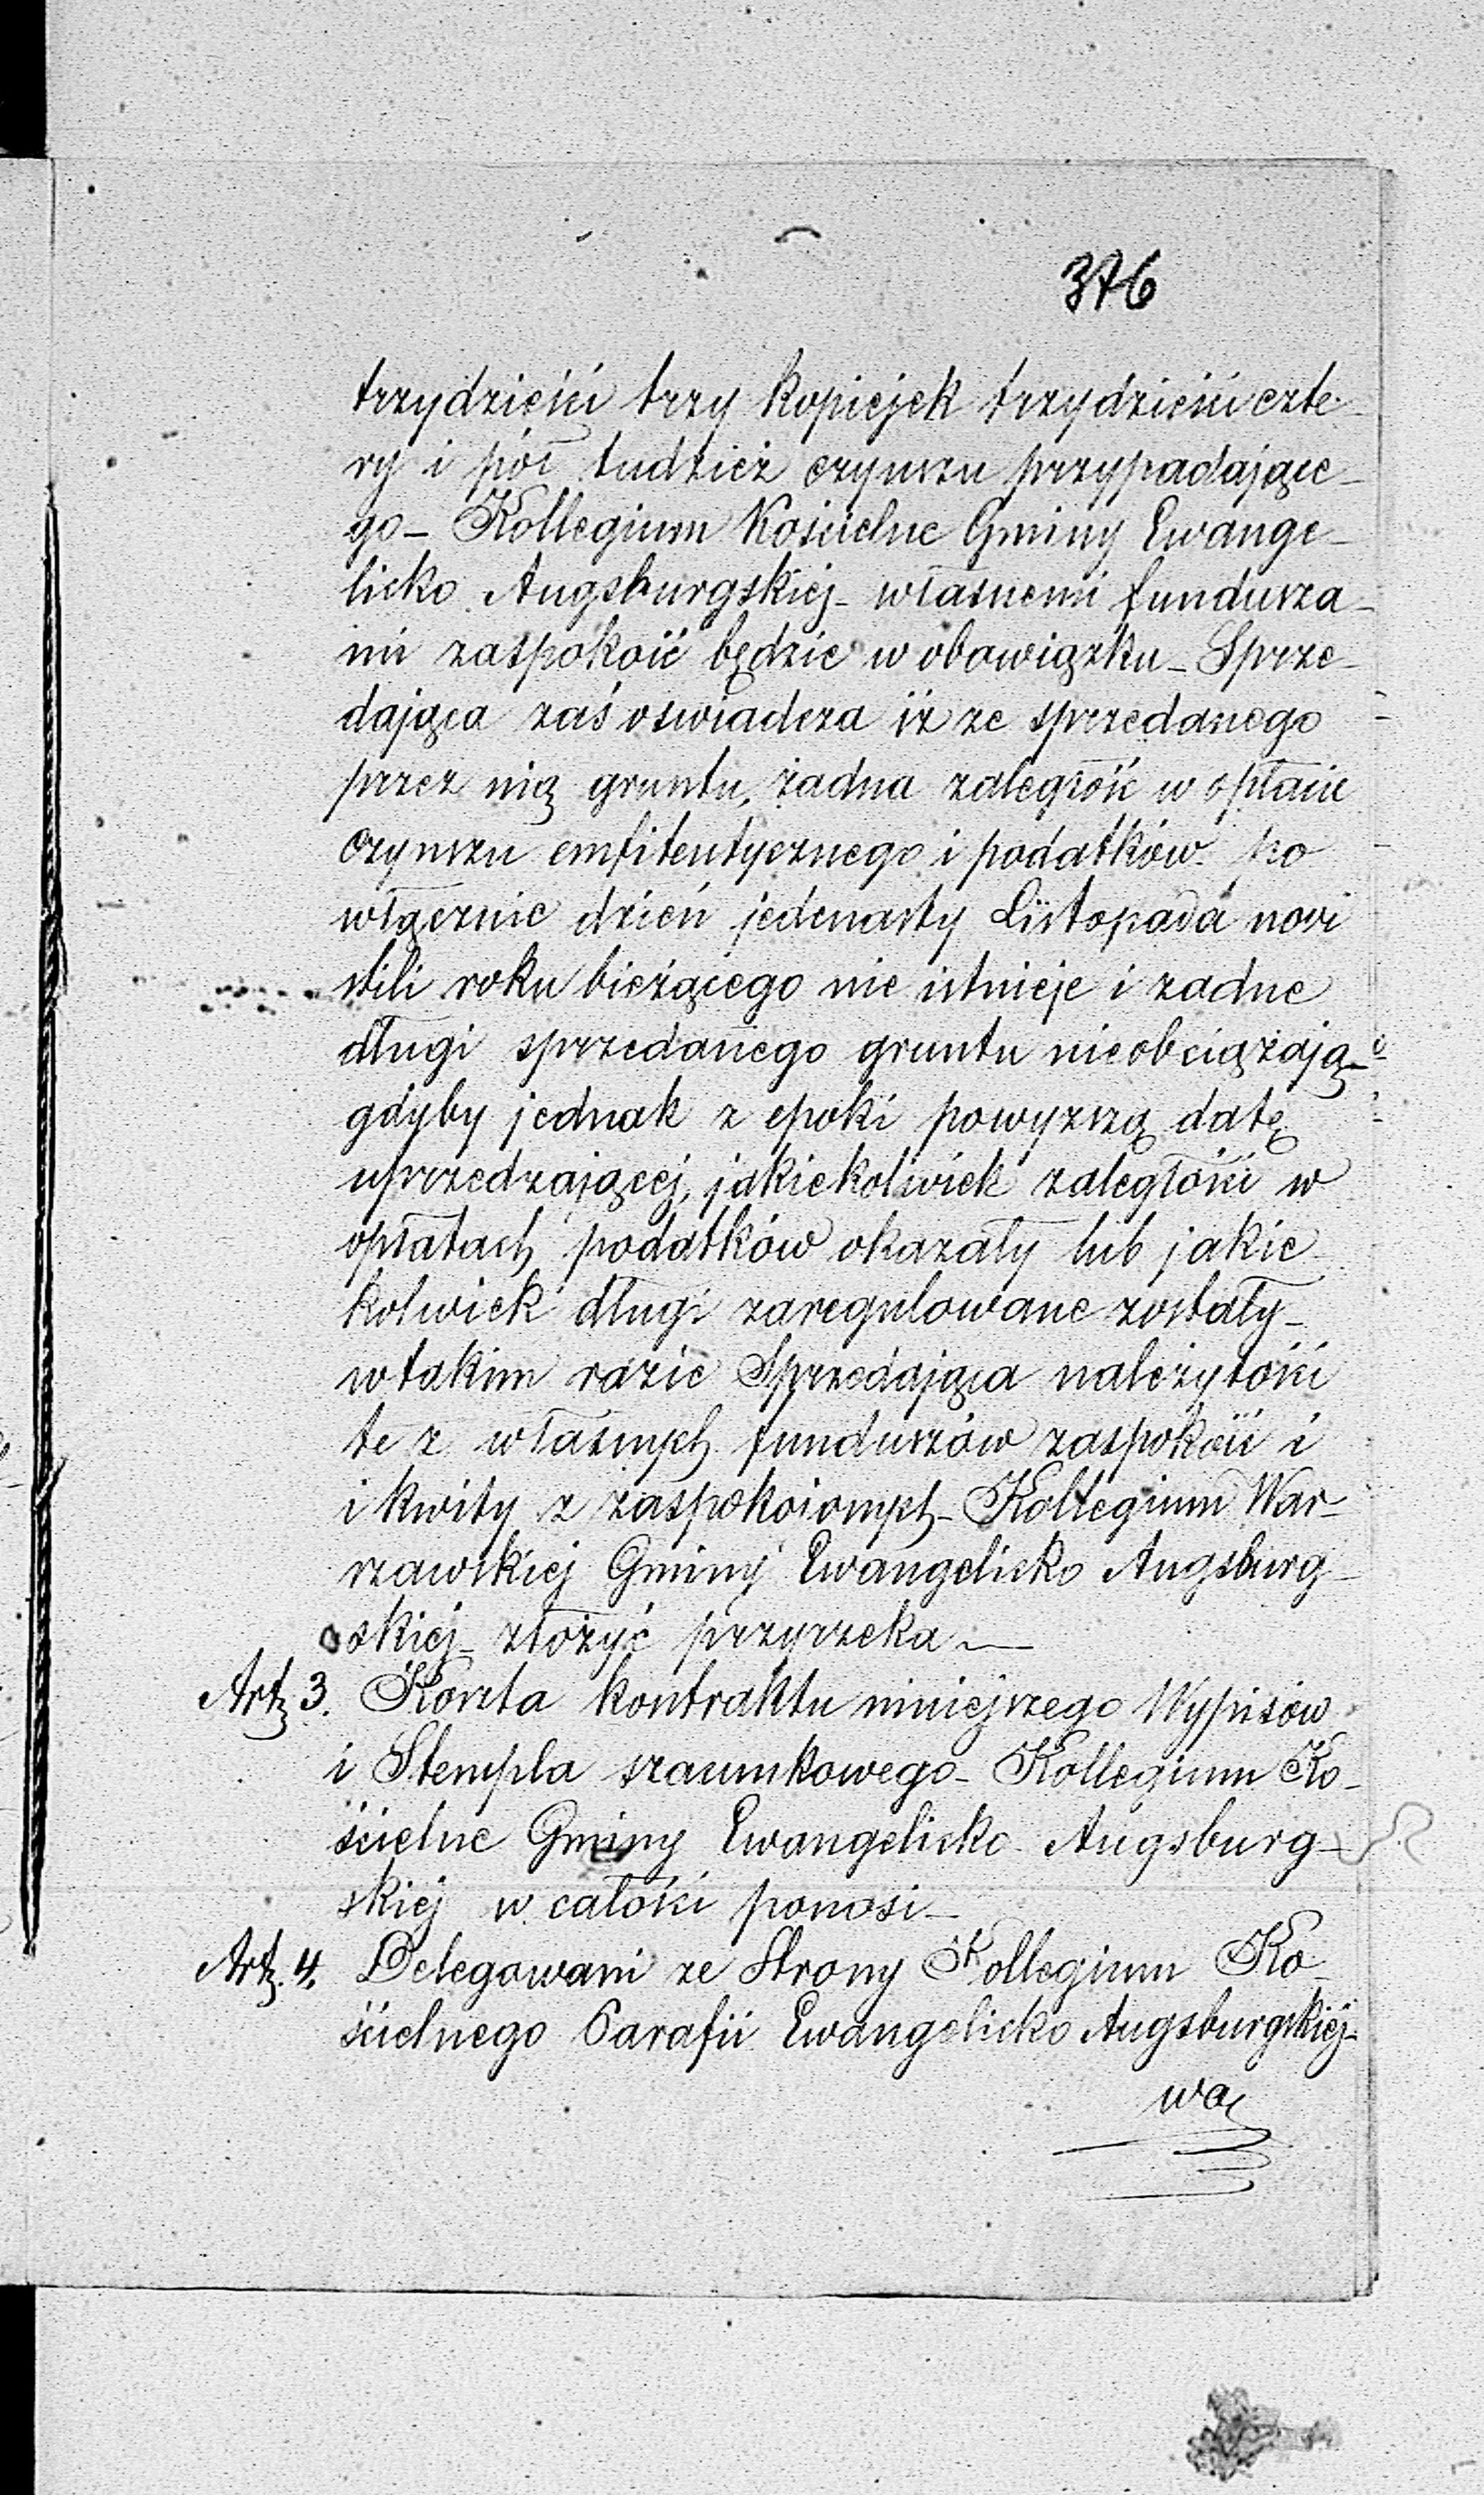 376
trzydzieści trzy kopiejek trzydzieści czte-
ry i pół tudzież czynszu przypadające-
go – Kollegium Kościelne Gminy Ewange-
licko Augsburgskiej – własnemi fundusza-
mi zaspokoić będzie w obowiązku – Sprze-
dająca zaś oswiadcza iż ze sprzedanego
przez nią gruntu, żadna zaległość w opłacie
czynszu emfiteutycznego i podatków po
włącznie dzień jedenasty Listopada novi
stili roku bieżącego nie istnieje i żadne
długi sprzedanego gruntu nieobciążają –
gdyby jednak z epoki powyższą datę
uprzedzającej, jakiekolwiek zaległości w
opłatach podatków okazały lub jakie
kolwiek długi zaregulowane zostały –
w takim razie Sprzedająca należytości
te z własnych funduszów zaspokoić i
i kwity z zaspokoionych – Kollegium War-
szawskiej Gminy Ewangelicko Augsburg-
skiej – złożyć przyrzeka —
Art. 3. Koszta kontraktu niniejszego Wypisów
i Stempla szacunkowego – Kollegium Ko-
ścielne Gminy Ewangelicko Augsburg-
skiej w całości ponosi –
Art. 4. Delegowani ze Strony Kollegium Ko-
ścielnego Parafii Ewangelicko Augsburgskiej –
wa